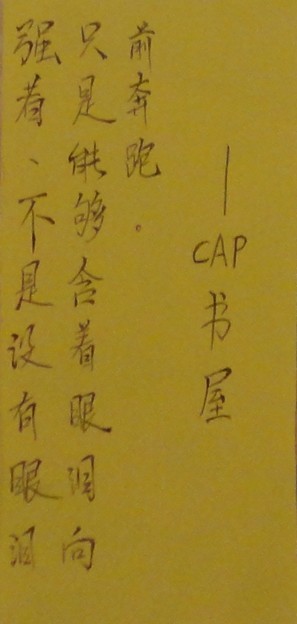 强着、不是没有眼泪
只是能够含着眼泪向
前奔跑。
—CAP书屋